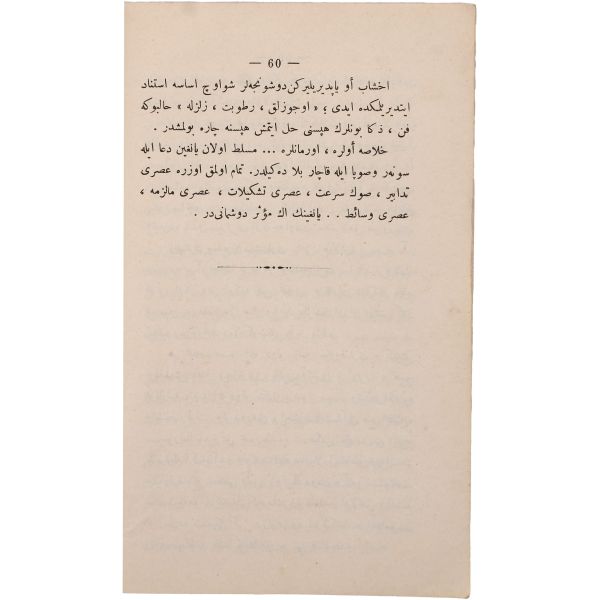 — 60 —
اخشاب أو ياپديريليركن دوشونجه‌لر شواوچ اساسه استناد
ايتديريلمكده ايدى ؛ « اوجوزلق ، رطوبت ، زلزله » حالبوكه
فن ، ذكا بونلرك هپسنى حل ايتمش هپسنه چاره بولمشدر .
خلاصه أولره ، اورمانلره ... مسلط اولان يانغين دعا ايله
سونه‌ر وصوپا ايله قاچار بلا ده‌كيلدر. تمام اولمق اوزره عصرى
تدابير ، صوك سرعت ، عصرى تشكيلات ، عصرى مالزمه ،
عصرى وسائط . . يانغينك اك مؤثر دوشمانى‌در .